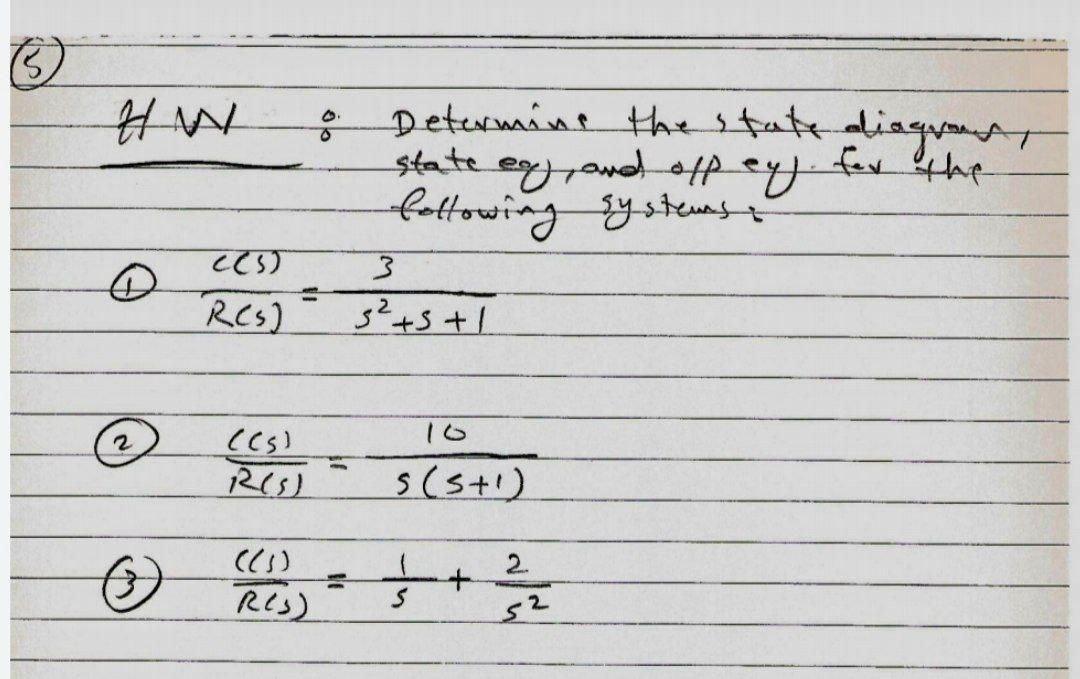 5
HW : Determine the state diagram,
state eq, and o/p eq. for the
following systems:
① C(s)/R(s) = 3/(s²+s+1)
② C(s)/R(s) = 10/(s(s+1))
③ C(s)/R(s) = 1/s + 2/s²